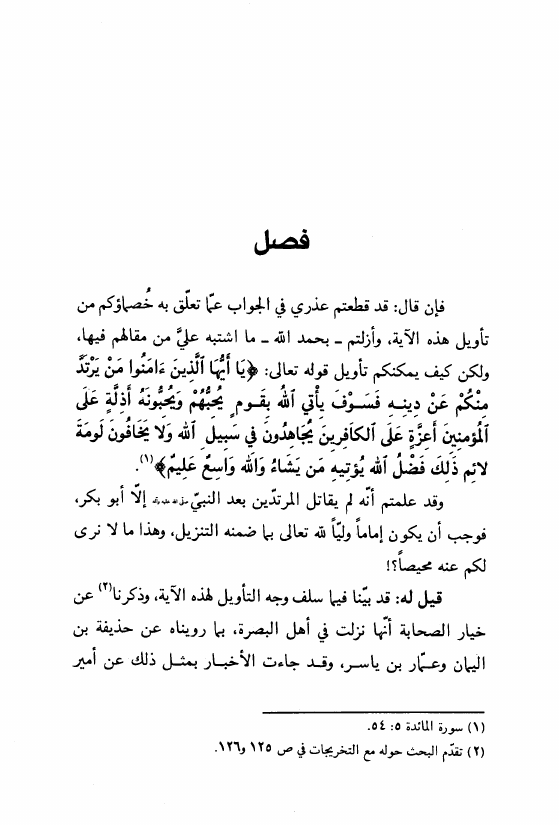 فصل
فإن قال: قد قطعتم عذري في الجواب عمّا تعلّق به خُصماؤكم من
تأويل هذه الآية، وأزلتم ـ بحمد الله ـ ما اشتبه عليَّ من مقالهم فيها،
ولكن كيف يمكنكم تأويل قوله تعالى: ﴿يَا أَيُّهَا ٱلَّذِينَ ءَامَنُوا مَنْ يَرْتَدَّ
مِنْكُمْ عَنْ دِينِهِ فَسَوْفَ يَأْتِي ٱللهُ بِقَومٍ يُحِبُّهُمْ وَيُحِبُّونَهُ أَذِلَّةٍ عَلَى
ٱلْمُؤمِنِينَ أَعِزَّةٍ عَلَى ٱلكَافِرِينَ يُجَاهِدُونَ فِي سَبِيلِ ٱللهِ وَلَا يَخَافُونَ لَومَةَ
لائِمٍ ذَلِكَ فَضْلُ ٱللهِ يُؤتِيهِ مَن يَشَاءُ وَٱللهُ وَاسِعٌ عَلِيمٌ﴾(١).
وقد علمتم أنّه لم يقاتل المرتدّين بعد النبيّ إلّا أبو بكر،
فوجب أن يكون إماماً وليّاً لله تعالى بما ضمنه التنزيل، وهذا ما لا نرى
لكم عنه محيصاً؟!
قيل له: قد بيّنا فيما سلف وجه التأويل لهذه الآية، وذكرنا(٢) عن
خيار الصحابة أنّها نزلت في أهل البصرة، بما رويناه عن حذيفة بن
اليمان وعمّار بن ياسر، وقد جاءت الأخبار بمثل ذلك عن أمير
(١) سورة المائدة ٥: ٥٤.
(٢) تقدّم البحث حوله مع التخريجات في ص ١٢٥ و١٢٦.